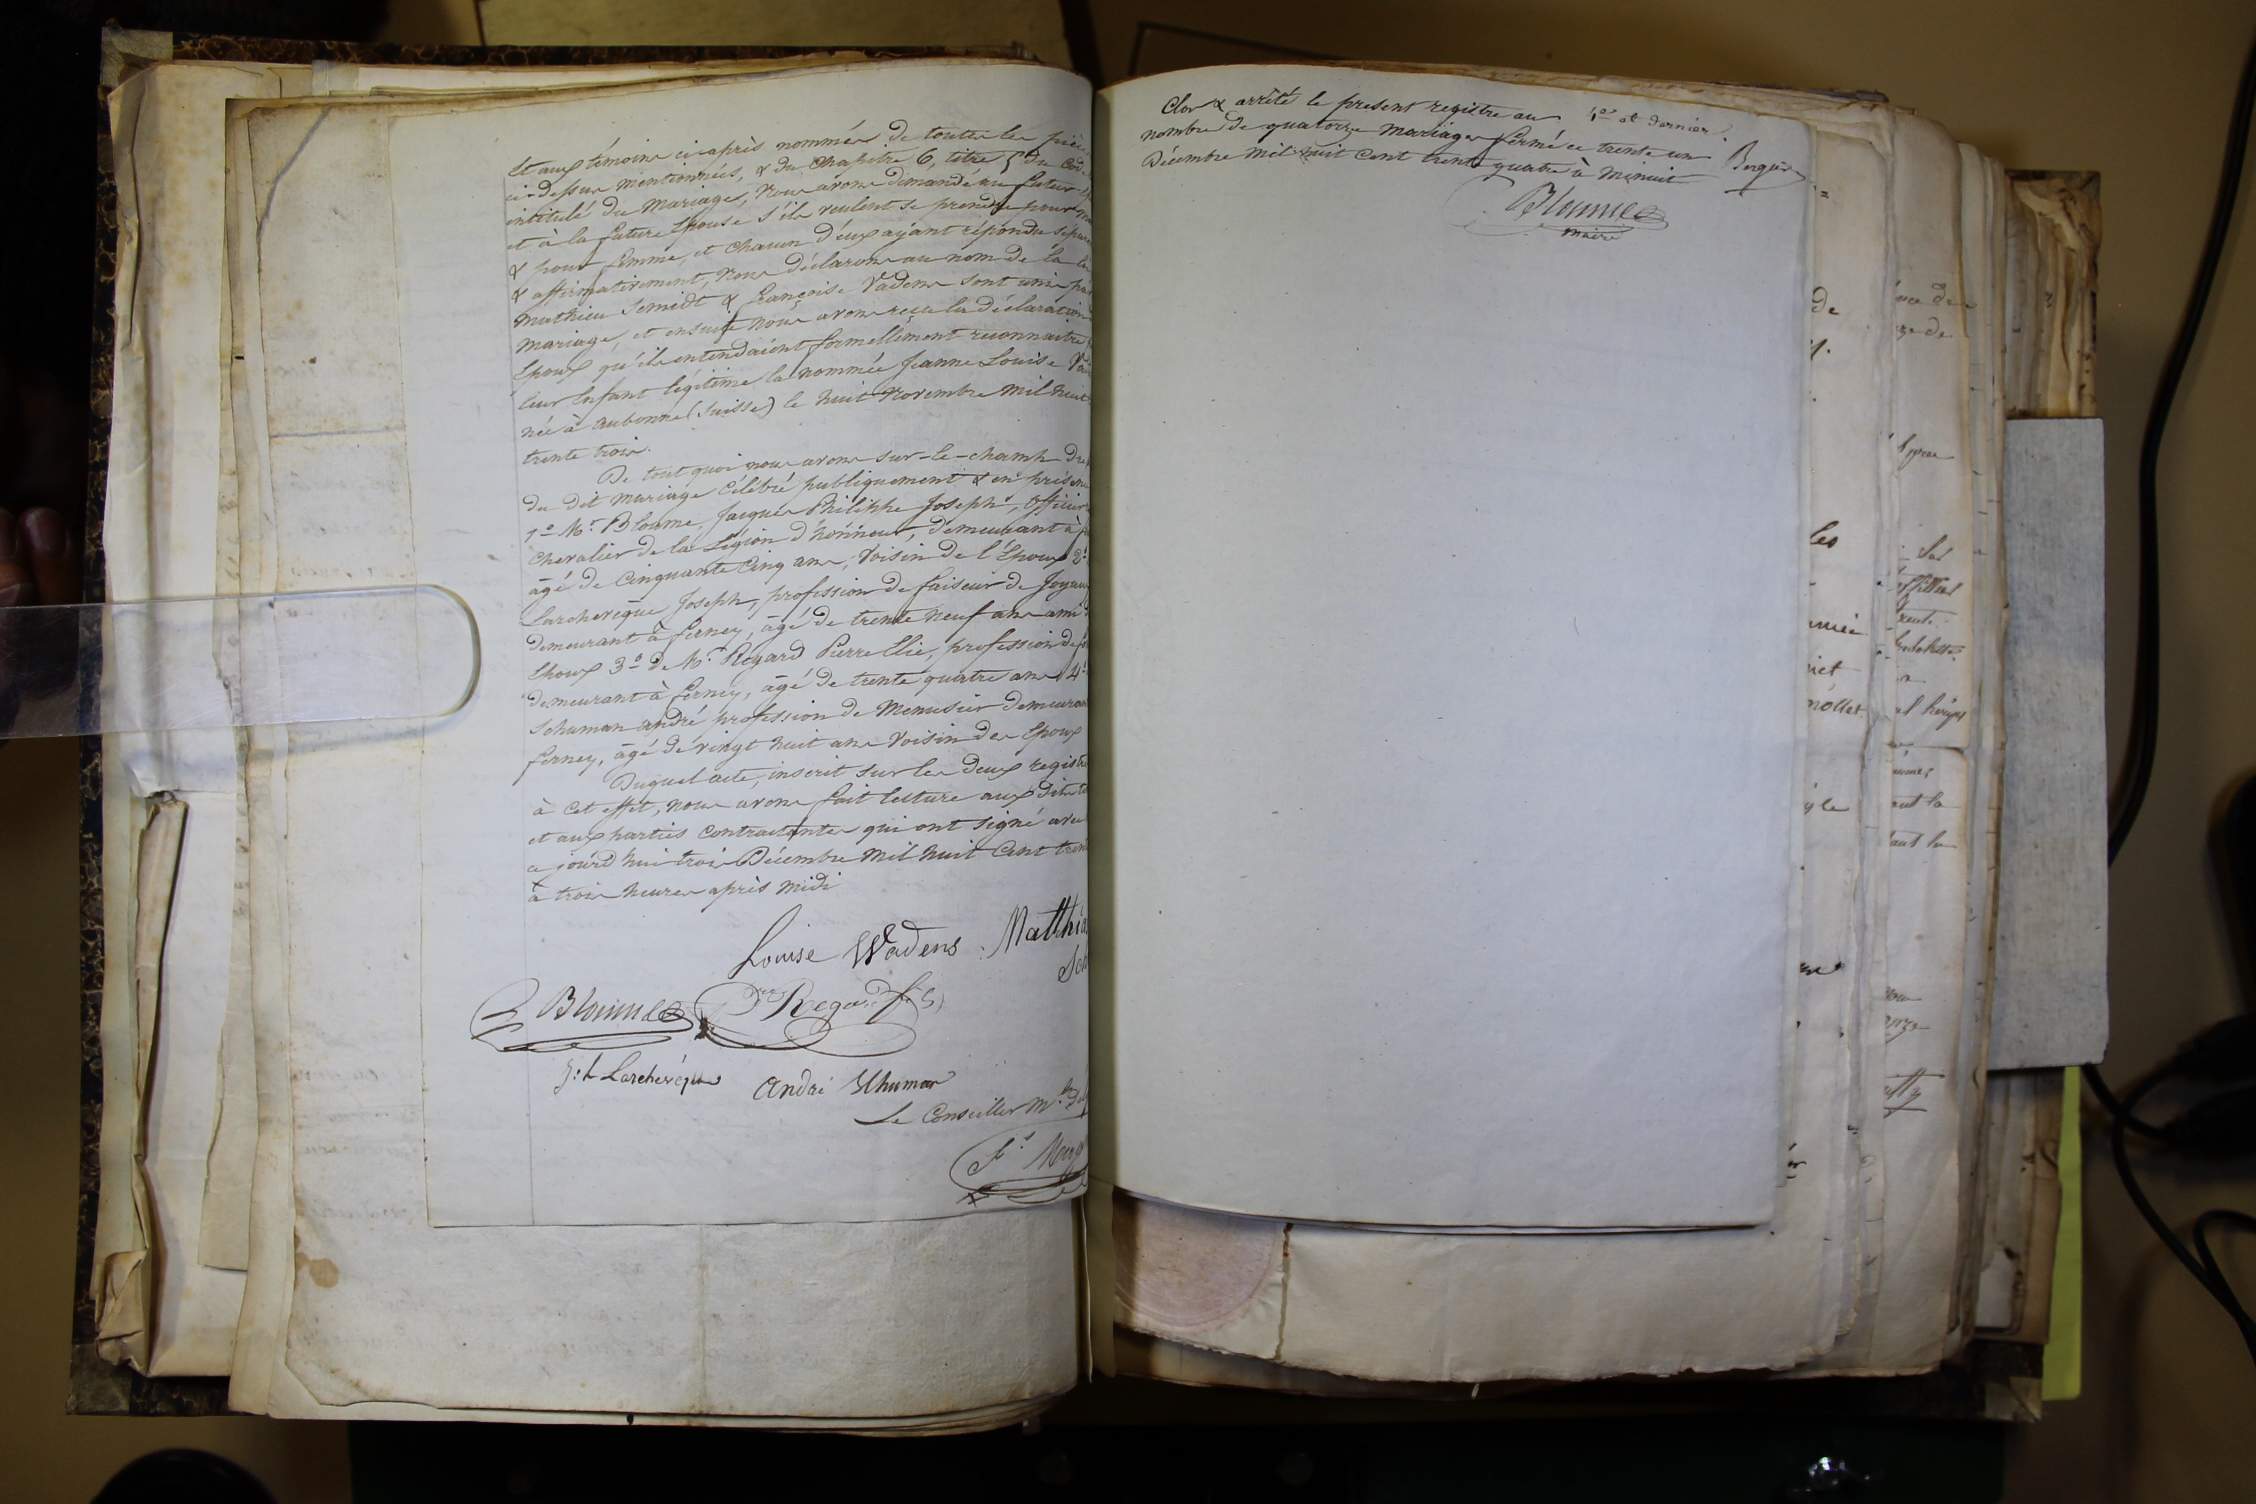 Et aux témoins ci-après nommés de toutes les pièc
ci-dessus mentionnées, & du Chapitre 6, titre 5 du Cod
intitulé du Mariages, Nous avons demandé au futur
et à la future Epouse s'ils veulent se prendre pour
& pour femme, et chacun d'eux ayant répondu sépar
& affirmativement, Nous déclarons au nom de la
Mathieu Semidt & françoise Vadens sont unis pa
mariage, et ensuite nous avons reçu la déclaration
Epoux qu'ils entendaient formellement reconnaitre
leur Enfant légitime la nommée Jeanne Louise Va
née à aubonne (Suisse) le huit Novembre Mil huit
trente trois.
De tout quoi nous avons sur-le-champ
du dit mariage célébré publiquement & en présen
1º Mr. Bloume, Jacques Philippe Joseph, Officier
Chevalier de la Légion d'hónneur, demeurant à
âgé de Cinquante Cinq ans, Voisin de l'Epoux 2º
Larchevêque Joseph, profession de faiseur de Joyau
demeurant à ferney, âgé de trente neuf ans ami
Epoux 3º de Mr. Regard Pierre Elie, profession de
demeurant à ferney, âgé de trente quatre ans 4º
Schuman andré profession de Menuisier demeuran
ferney, âgé de vingt huit ans Voisin des Epoux
Duquel acte, inscrit sur les deux registr
à cet effet, nous avons fait lecture aux dits
et aux parties Contractantes qui ont signé avec
a jourd'hui trois Décembre Mil huit Cent tren
à trois heures après midi
Louise Wadens Matthi
Bloume Regard
Larchevêque André Schuman
Le Conseiller
Clos & arrêté le present registre au
nombre de quatorze Mariages fermé ce trente un
Décembre Mil huit Cent trente quatre à Minuit
Bloume
Maire
et dernier